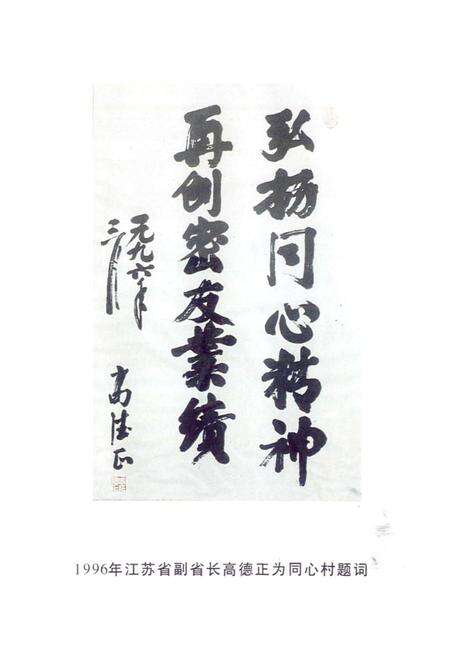 弘扬同心精神
再创密友業绩
一九九六年
三月
高德正
1996年江苏省副省长高德正为同心村题词